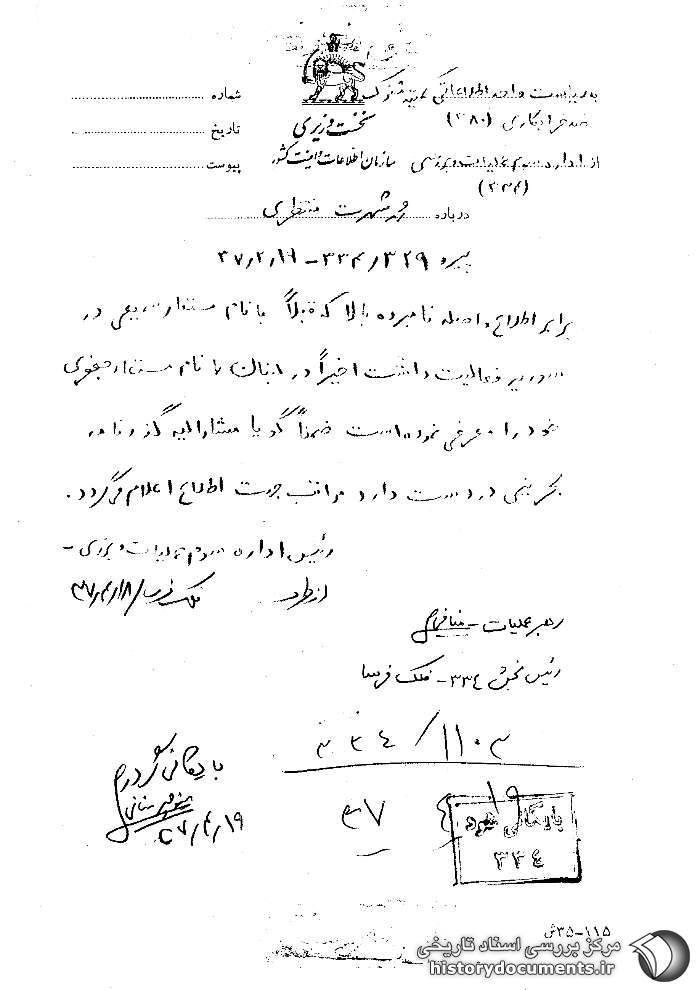 به ریاست واحد اطلاعاتی کمیته مشترک
ضد خرابکاری (۳۸۰)
از اداره سوم عملیات و بررسی
(۳۳۴)
نخست وزیری
سازمان اطلاعات و امنیت کشور
شماره
تاریخ
پیوست
درباره شهرت منتظری
پیرو ۳۲۹/۳۳۴ - ۳۷/۲/۱۹
برابر اطلاع واصله نامبرده بالا که قبلاً با نام مستعار سمیعی در
سوریه فعالیت داشت اخیراً در لبنان با نام مستعار جعفری
خود را معرفی نموده است ضمناً گویا مشارالیه گذرنامه
بحرینی در دست دارد مراتب جهت اطلاع اعلام میگردد.
رئیس اداره سوم عملیات و بررسی -
از طرف
رهبر عملیات -
رئیس بخش ۳۳۴ - ملک فرسا
۳۳۴/۱۱۰۳
۳۷ ۴ ۱۹
بایگانی شود
۳۳۴
بایگانی گردد
۳۷/۴/۱۹
۱۱۵-۳۵ش
مرکز بررسی اسناد تاریخی
historydocuments.ir